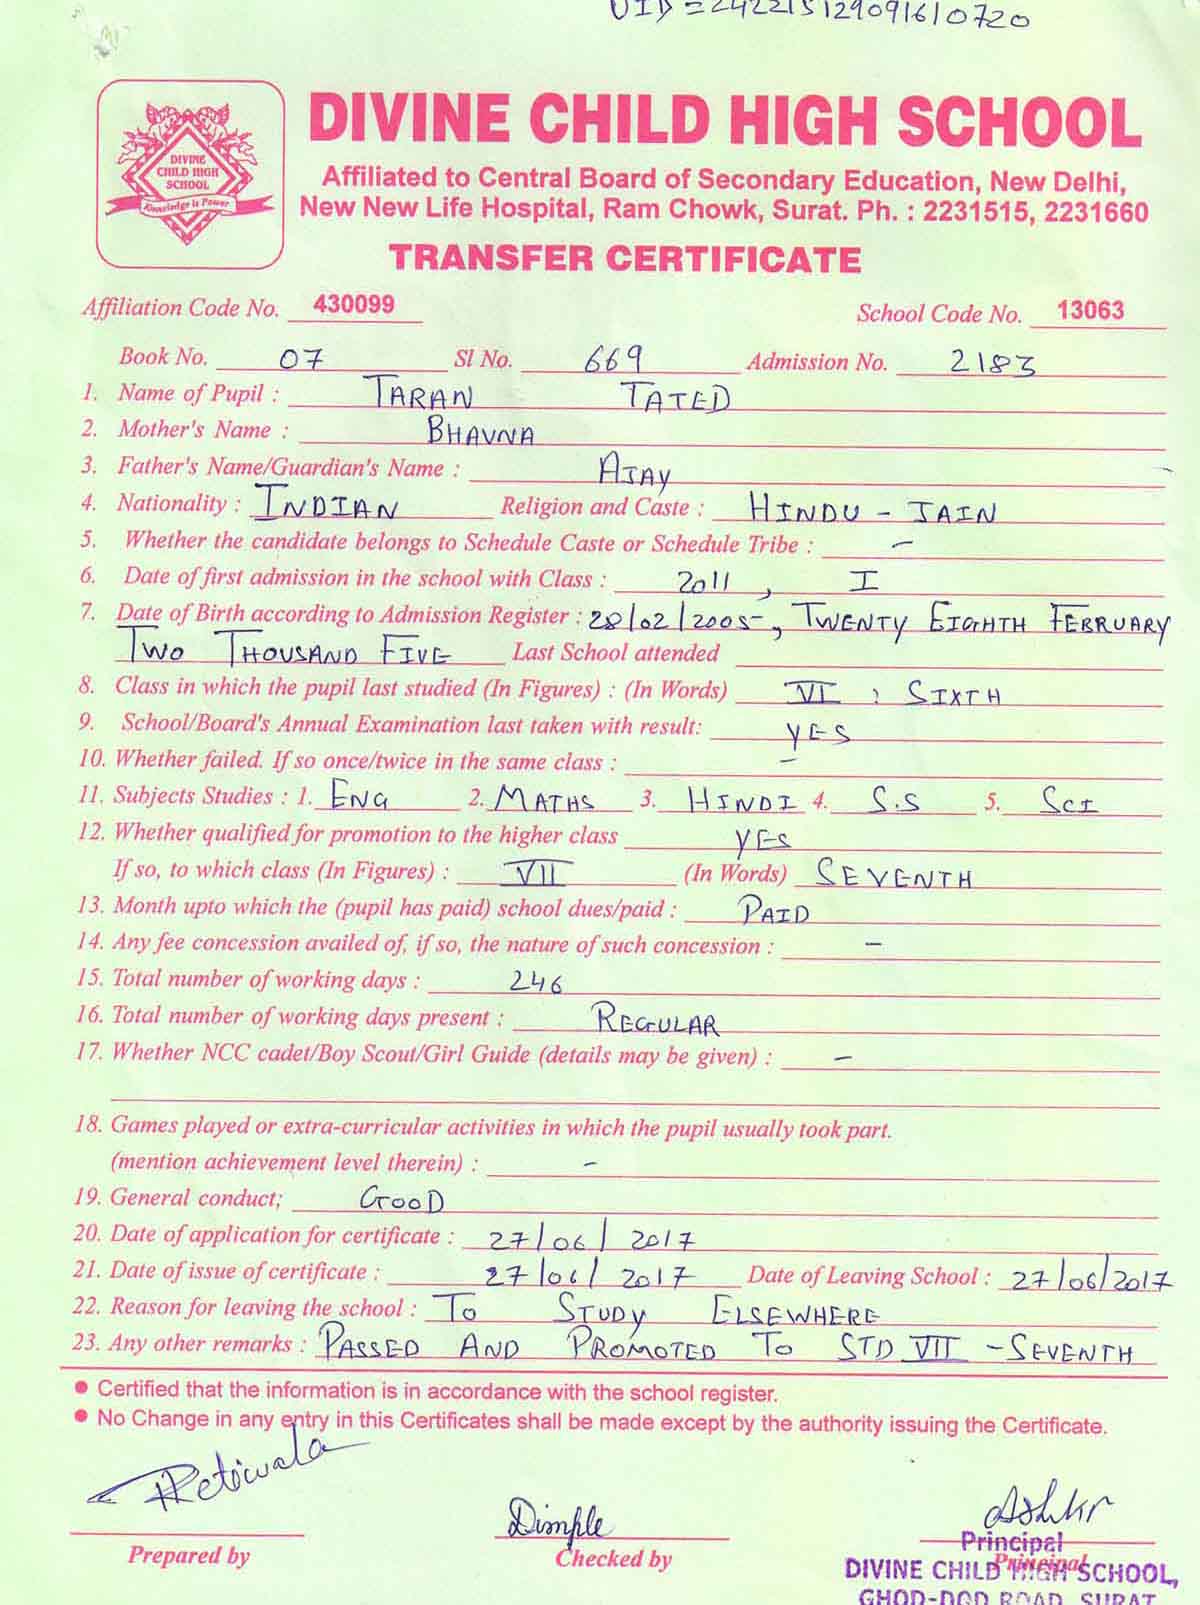 UID = 242215129091610720
DIVINE
CHILD HIGH
SCHOOL
Knowledge is Power
DIVINE CHILD HIGH SCHOOL
Affiliated to Central Board of Secondary Education, New Delhi,
New New Life Hospital, Ram Chowk, Surat. Ph. : 2231515, 2231660
TRANSFER CERTIFICATE
Affiliation Code No. 430099 School Code No. 13063
Book No. 07 Sl No. 669 Admission No. 2183
1. Name of Pupil : TARAN TATED
2. Mother's Name : BHAVNA
3. Father's Name/Guardian's Name : AJAY
4. Nationality : INDIAN Religion and Caste : HINDU - JAIN
5. Whether the candidate belongs to Schedule Caste or Schedule Tribe : -
6. Date of first admission in the school with Class : 2011, I
7. Date of Birth according to Admission Register : 28/02/2005, TWENTY EIGHTH FEBRUARY
TWO THOUSAND FIVE Last School attended
8. Class in which the pupil last studied (In Figures) : (In Words) VI : SIXTH
9. School/Board's Annual Examination last taken with result: YES
10. Whether failed. If so once/twice in the same class : -
11. Subjects Studies : 1. ENG 2. MATHS 3. HINDI 4. S.S 5. SCI
12. Whether qualified for promotion to the higher class YES
If so, to which class (In Figures) : VII (In Words) SEVENTH
13. Month upto which the (pupil has paid) school dues/paid : PAID
14. Any fee concession availed of, if so, the nature of such concession : -
15. Total number of working days : 246
16. Total number of working days present : REGULAR
17. Whether NCC cadet/Boy Scout/Girl Guide (details may be given) : -
18. Games played or extra-curricular activities in which the pupil usually took part.
(mention achievement level therein) : -
19. General conduct; GOOD
20. Date of application for certificate : 27/06/2017
21. Date of issue of certificate : 27/06/2017 Date of Leaving School : 27/06/2017
22. Reason for leaving the school : TO STUDY ELSEWHERE
23. Any other remarks : PASSED AND PROMOTED TO STD VII - SEVENTH
• Certified that the information is in accordance with the school register.
• No Change in any entry in this Certificates shall be made except by the authority issuing the Certificate.
Dimple
Prepared by Checked by Principal
Principal
DIVINE CHILD HIGH SCHOOL,
GHOD-DOD ROAD, SURAT